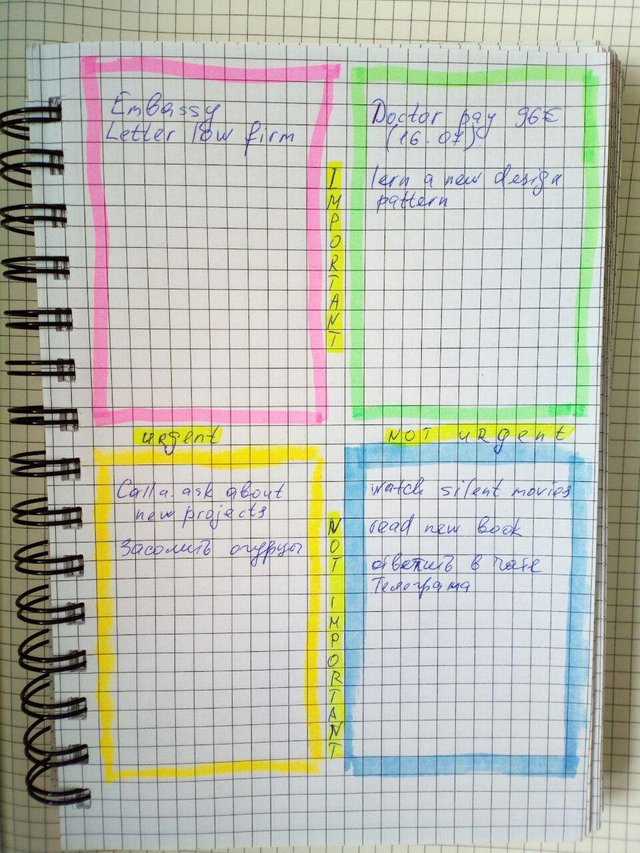 Embassy
Letter low firm
Doctor pay 96€
(16.07)
lern a new design
pattern
IMPORTANT
urgent
NOT urgent
Call a. ask about
new projects
Засолить огурцы
watch silent movies
read new book
ответить в чате
Телеграма
NOT IMPORTANT